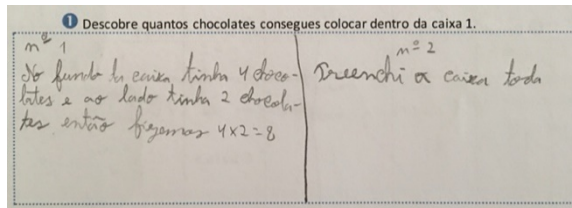 1 Descobre quantos chocolates consegues colocar dentro da caixa 1.
nº 1
No fundo da caixa tinha 4 choco-
lates e ao lado tinha 2 chocola-
tes então fizemos 4x2=8
nº 2
Preenchi a caixa toda